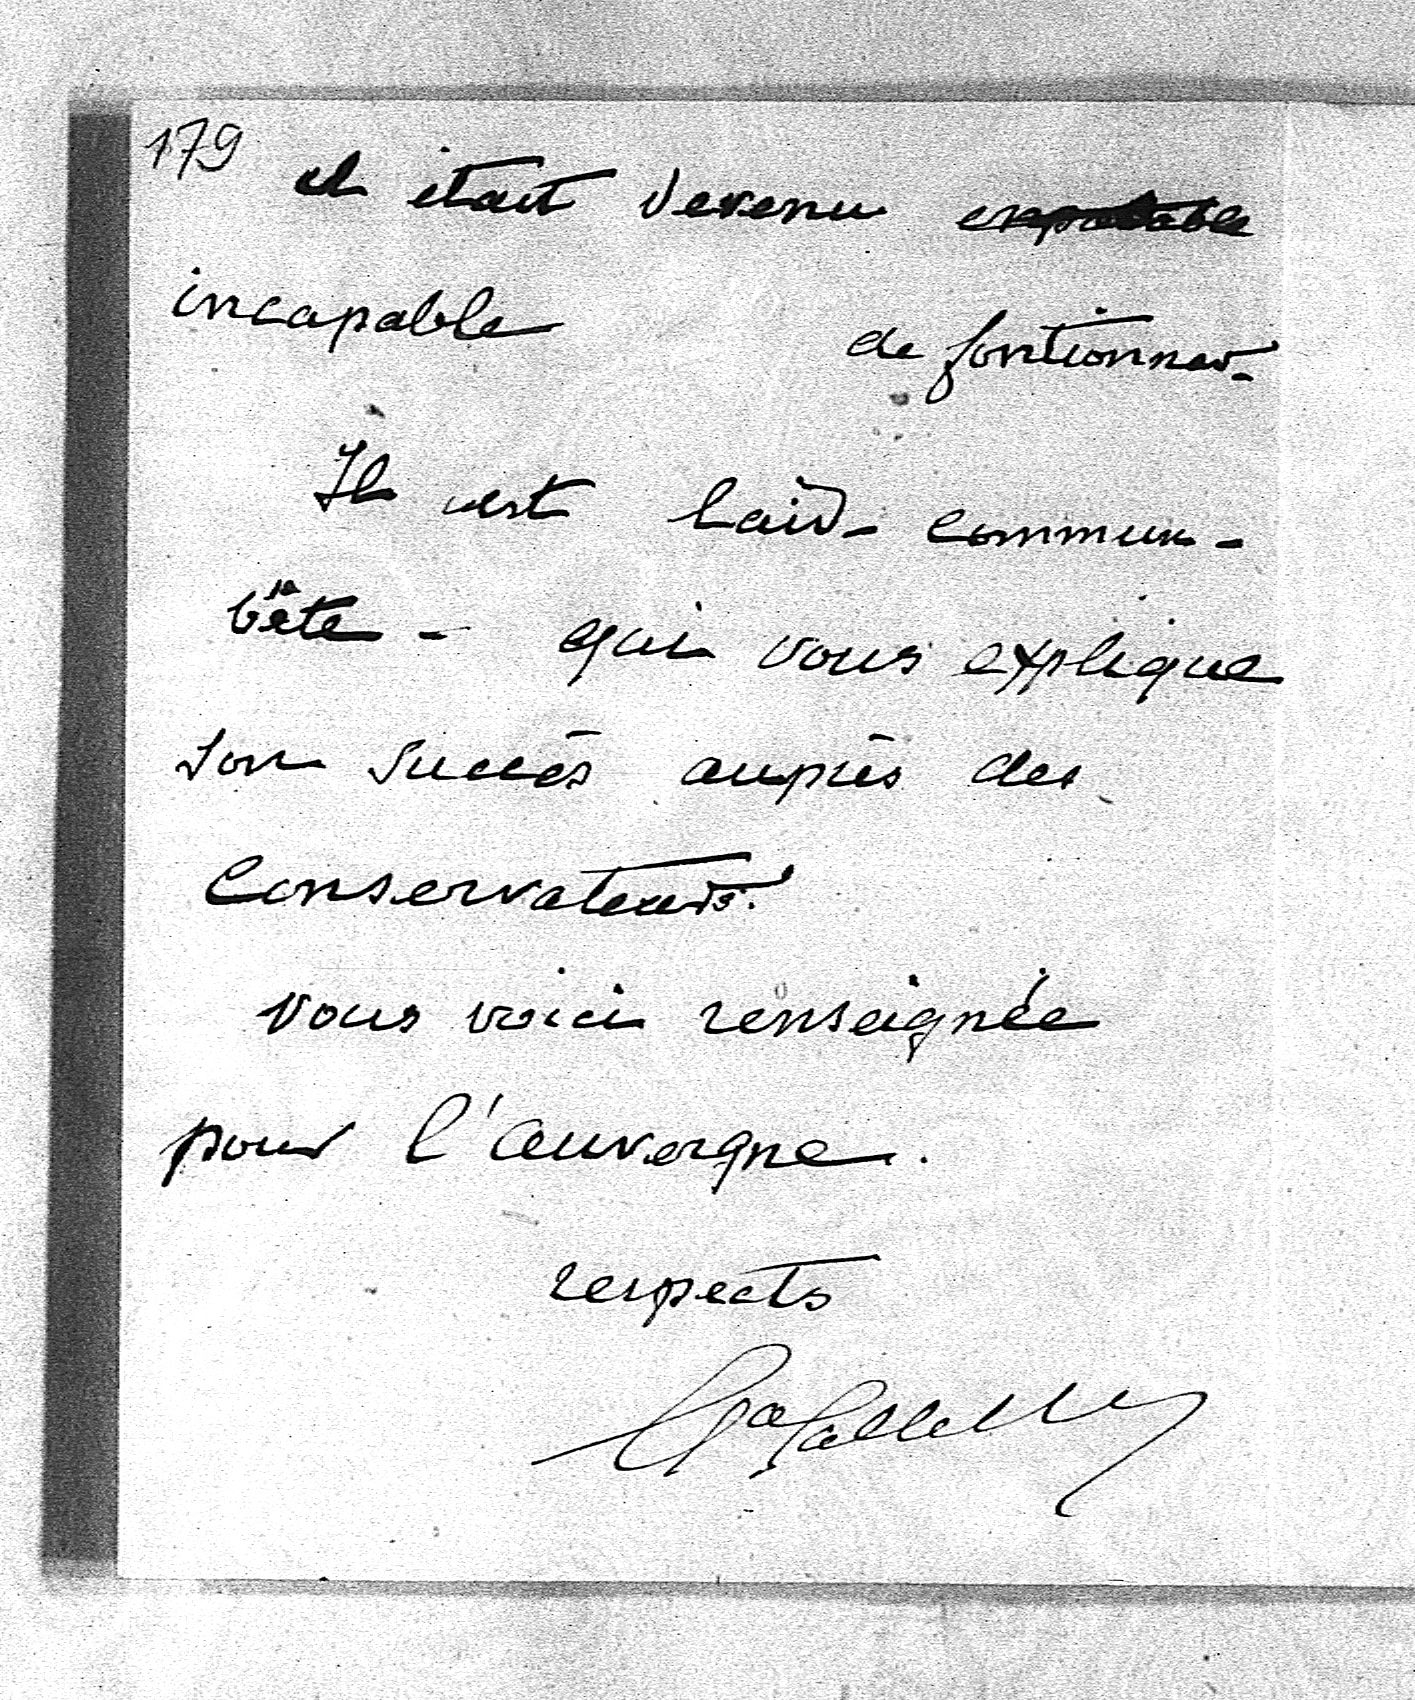 179
il était devenu
incapable de fontionner.
Il est laid - commun -
bête - qui vous explique
son succès auprès des
Conservateurs.
vous voici renseignée
pour l'auvergne.
respects